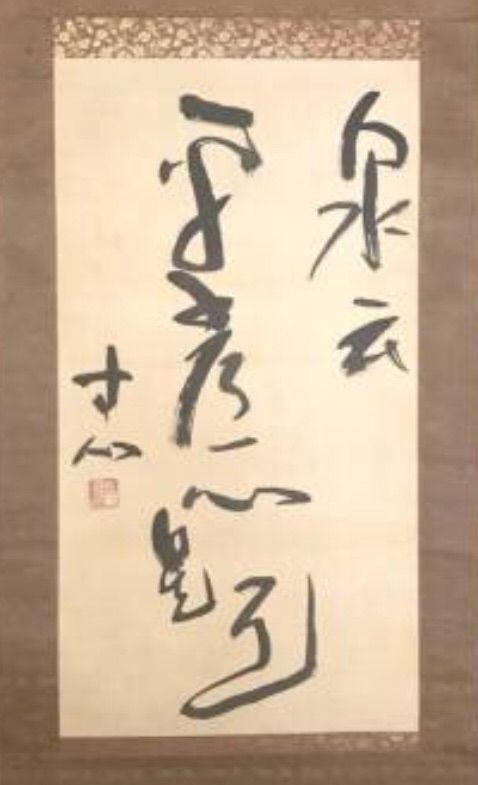 泉云
平常心是道
寸心